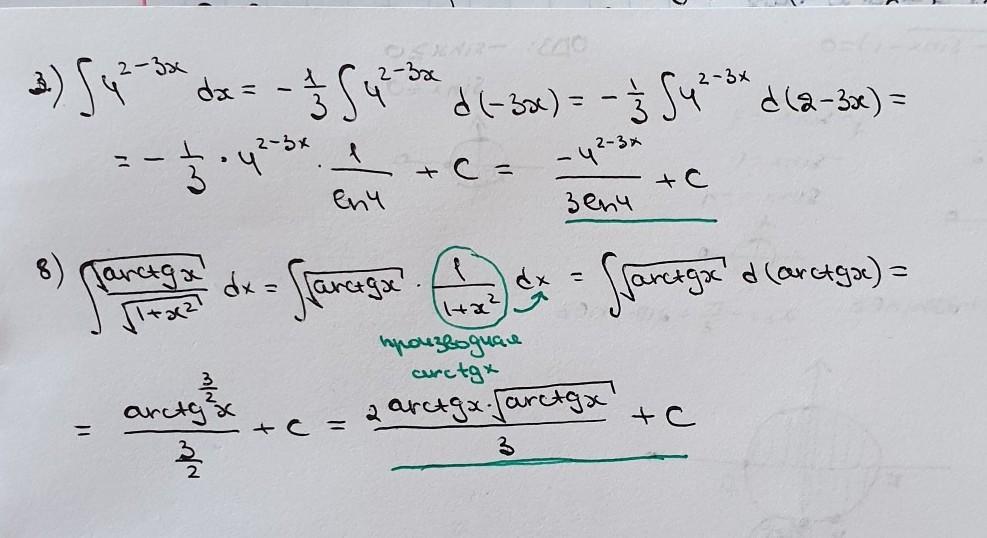 3) ∫4^{2-3x} dx = -\frac{1}{3} ∫4^{2-3x} d(-3x) = -\frac{1}{3} ∫4^{2-3x} d(2-3x) =
= -\frac{1}{3} · 4^{2-3x} · \frac{1}{ln4} + C = \frac{-4^{2-3x}}{3ln4} + C
8) ∫\frac{\sqrt{arctgx}}{\sqrt{1+x^2}} dx = ∫\sqrt{arctgx} · \frac{1}{1+x^2} dx = ∫\sqrt{arctgx} d(arctgx) =
производная
arctgx
= \frac{arctg^{\frac{3}{2}}x}{\frac{3}{2}} + C = \frac{2 arctgx·\sqrt{arctgx}}{3} + C